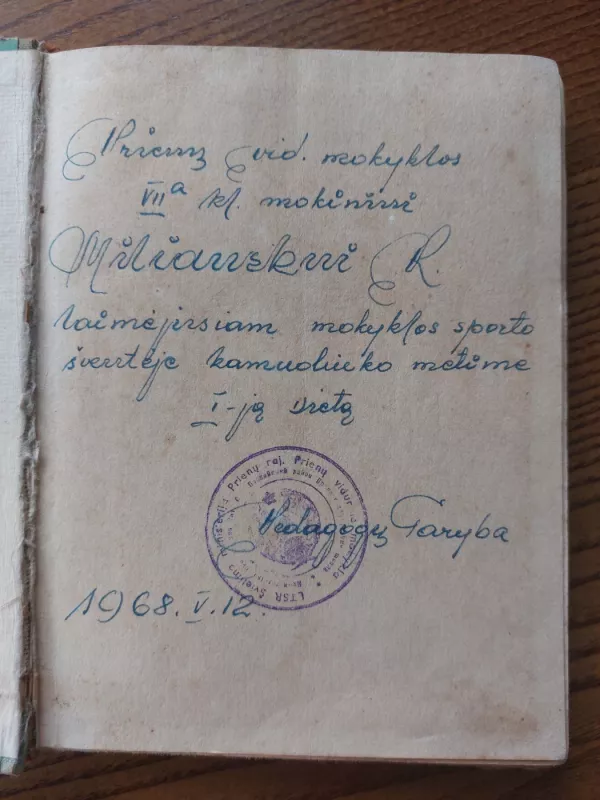 Prienų vid. mokyklos
VII a kl. mokiniui
Miliauskui R.
laimėjusiam mokyklos sporto
šventėje kamuoliuko metime
I-ją vietą
LTSR Švietimo ministerija Prienų raj. Prienų vidur
Pedagogų Taryba
1968.V.12.